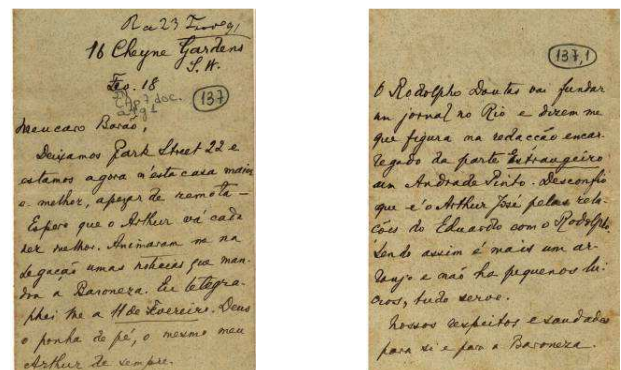 R a 23 Fev 91
16 Cheyne Gardens
S. W.
Feb. 18
Cap 7 doc.
137
Meu caro Barão,
Deixamos Park Street 22 e
estamos agora n'esta casa maior
e melhor, apezar de remota —
Espero que o Arthur vá cada
vez melhor. Animaram me na
Legação umas noticias que man-
dou a Baroneza. Eu telegra-
phei lhe a 11 de Fevereiro. Deus
o ponha de pé, o mesmo meu
Arthur de sempre.
137,1
O Rodolpho Dantas vai fundar
um jornal no Rio e dizem me
que figura na redacção encar-
regado da parte Estrangeira
um Andrade Pinto. Desconfio
que é o Arthur José pelas rela-
ções do Eduardo com o Rodolpho.
Sendo assim é mais um ar-
ranjo e não ha pequenos lu-
cros, tudo serve.
Nossos respeitos e saudades
para si e para a Baroneza.